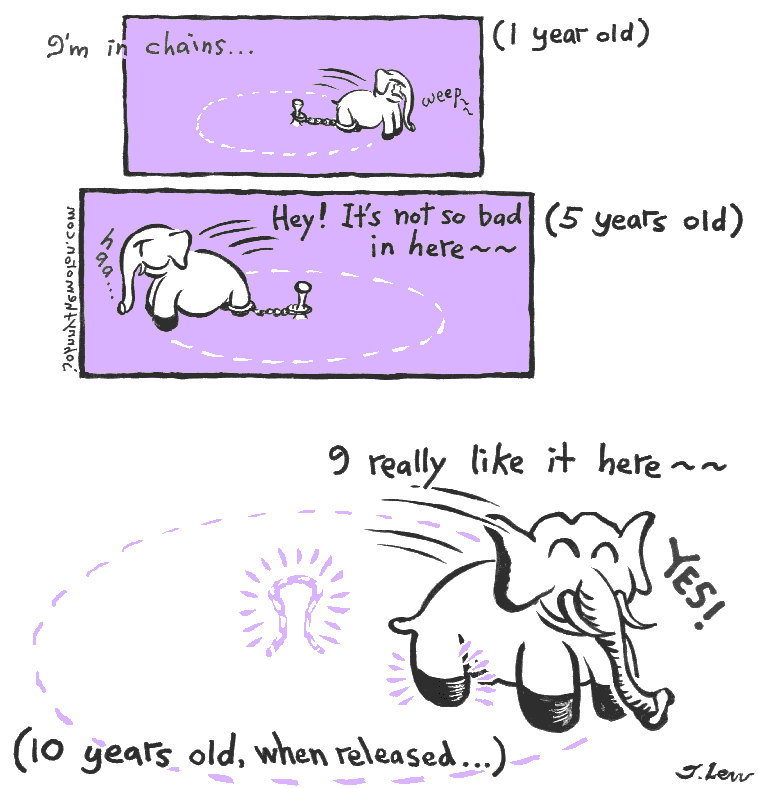 I'm in chains...
(1 year old)
weep~~
Hey! It's not so bad
in here~~
(5 years old)
haa...
I really like it here~~
YES!
(10 years old, when released...)
J.Lew